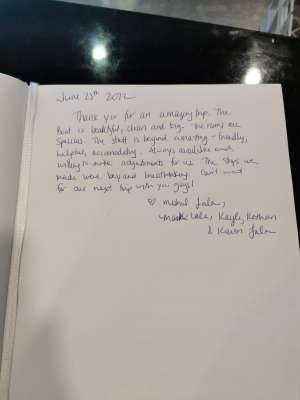 June 25th 2022
Thank you for an amazing trip. The
Boat is beautiful, clean and big. The rooms are
Spacious. The staff is beyond amazing - friendly,
helpful, accomodating. Always available and
willing to make adjustments for us. The stops we
made were beyond breathtaking. Can't wait
for our next trip with you guys!
♡
Kayly,
& Kevin